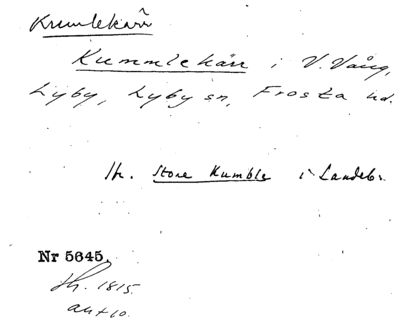 Krumlekärr
Kummlekärr i V. Vång,
Lyby, Lyby sn, Frosta hd.
Jfr. Store Kumble i Landeb.
Nr 5645.
Jfr. 1815.
ant 10.